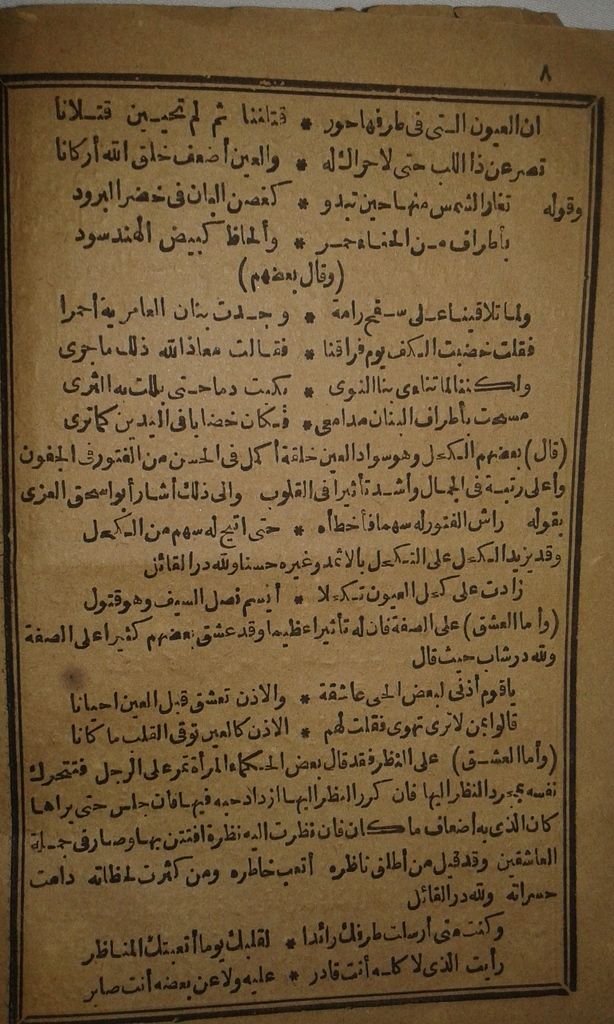 ٨
ان العيون التي في طرفها حور * قتلننا ثم لم تحيين قتلانا
تصرعن ذا اللب حتى لا حراك له * والعين أضعف خلق الله أركانا
وقوله تغار الشمس منها حين تبدو * كغصن البان في خضر البرود
بأطراف من الحناء حمر * وألحاظ كبيض الهند سود
(وقال بعضهم)
ولما تلاقينا على سفح رامة * وجدت بنان العامرية أحمرا
فقلت خضبت الكف يوم فراقنا * فقالت معاذ الله ذلك ما جرى
ولكننا لما تناءى بنا النوى * بكيت دما حتى بللت به الثرى
مسحت بأطراف البنان مدامعي * فكان خضابا في اليدين كما ترى
(قال) بعضهم الكحل وهو سواد العين خلقة أكمل في الحسن من الفتور في الجفون
وأعلى رتبة في الجمال وأشد تأثيرا في القلوب والى ذلك أشار أبو اسحق الغزى
بقوله راش الفتور له سهما فأخطأه * حتى اتيح له سهم من الكحل
وقد يزيد الكحل على التكحل بالاثمد وغيره حسنا ولله در القائل
زادت على كحل العيون تكحلا * أيسم نصل السيف وهو قتول
(وأما العشق) على الصفة فان له تأثيرا عظيما وقد عشق بعضهم كثيرا على الصفة
ولله در شاب حيث قال
ياقوم أذنى لبعض الحى عاشقة * والاذن تعشق قبل العين احيانا
قالوا بمن لا ترى تهوى فقلت لهم * الاذن كالعين توفى القلب ما كانا
(وأما العشق) على النظر فقد قال بعض الحكماء المرأة تمر على الرجل فتتحرك
نفسه بمجرد النظر اليها فان كرر النظر اليها ازداد حبه فيها فان جلس حتى يراها
كان الذى به أضعاف ما كان فان نظرت اليه نظرة افتتن بها وصار في جملة
العاشقين وقد قيل من أطلق ناظره أتعب خاطره ومن كثرت لحظاته دامت
حسراته ولله در القائل
وكنت متى أرسلت طرفك رائدا * لقلبك يوما أتعبتك المناظر
رأيت الذى لا كله أنت قادر * عليه ولا عن بعضه أنت صابر